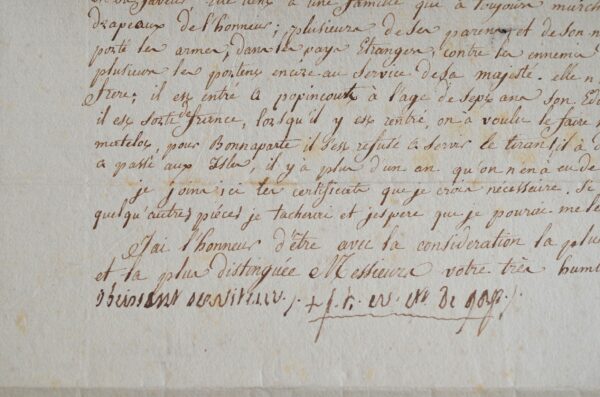 en sa faveur, elle tient à une famille qui a toujours march
drapeaux de l'honneur; plusieurs de ses parens et de son n
porté les armes, dans les pays Etrangers, contre les ennemis
plusieurs les portent encore au service de sa majesté. elle n
frere; il est entré a popincourt à l'age de sept ans son Edu
il est sorti de france, lorsqu'il y est rentré, on a voulu le faire
matelot, pour Bonnaparte il s'est refusé a servir le tiran; il a
a passé aux Isles, il y à plus d'un an qu'on n'en a eu de
je joins ici les certificats que je crois nécessaires. Si
quelqu'autres piéces je tacherai et j'espere que je pourai me le
J'ai l'honneur d'être avec la considération la plus
et la plus distinguée Messieurs votre très humb
obeissant serviteur. + j. h. ev. de